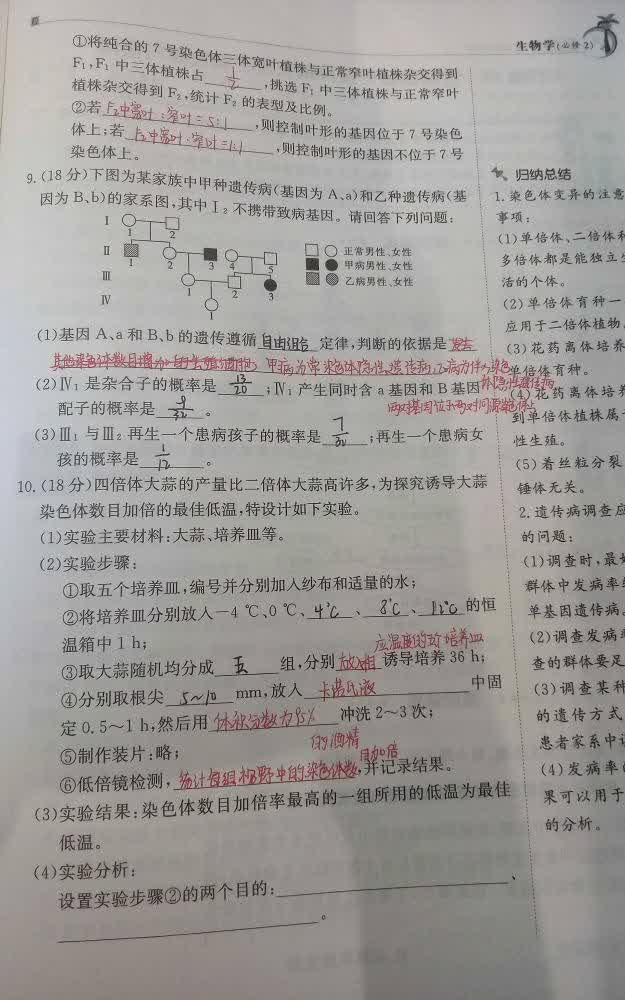 生物学(必修2)
①将纯合的7号染色体三体宽叶植株与正常窄叶植株杂交得到
F₁,F₁中三体植株占 1/2 ,挑选F₁中三体植株与正常窄叶
植株杂交得到F₂,统计F₂的表型及比例。
②若 F₂中宽叶:窄叶=5:1 ,则控制叶形的基因位于7号染色
体上;若 F₂中宽叶:窄叶=1:1 ,则控制叶形的基因不位于7号
染色体上。
9.(18分)下图为某家族中甲种遗传病(基因为A、a)和乙种遗传病(基
因为B、b)的家系图,其中Ⅰ₂不携带致病基因。请回答下列问题:
Ⅰ 1 2
Ⅱ 1 2 3 4 5
Ⅲ 1 2 3
Ⅳ 1
正常男性、女性
甲病男性、女性
乙病男性、女性
(1)基因A、a和B、b的遗传遵循 自由组合 定律,判断的依据是
甲病为常染色体隐性遗传病,乙病为伴X染色
体隐性遗传病
两对基因位于两对同源染色体上
(2)Ⅳ₁是杂合子的概率是 13/20 ;Ⅳ₁产生同时含a基因和B基因
配子的概率是 9/32 。
(3)Ⅲ₁与Ⅲ₂再生一个患病孩子的概率是 ;再生一个患病女
孩的概率是 1/12 。
10.(18分)四倍体大蒜的产量比二倍体大蒜高许多,为探究诱导大蒜
染色体数目加倍的最佳低温,特设计如下实验。
(1)实验主要材料:大蒜、培养皿等。
(2)实验步骤:
①取五个培养皿,编号并分别加入纱布和适量的水;
②将培养皿分别放入-4 ℃、0 ℃、 4℃ 、 8℃ 、 12℃ 的恒
温箱中1 h;
③取大蒜随机均分成 五 组,分别 放入相 诱导培养36 h;
应温度的 培养皿
④分别取根尖 5~10 mm,放入 卡诺氏液 中固
定0.5~1 h,然后用 体积分数为95% 冲洗2~3次;
的酒精
⑤制作装片:略;
⑥低倍镜检测, 统计每组视野中的染色体数 ,并记录结果。
目加倍
(3)实验结果:染色体数目加倍率最高的一组所用的低温为最佳
低温。
(4)实验分析:
设置实验步骤②的两个目的: 、
。
归纳总结
1.染色体变异的注意
事项:
(1)单倍体、二倍体和
多倍体都是能独立生
活的个体。
(2)单倍体育种一
应用于二倍体植物
(3)花药离体培养
单倍体育种。
(4)花药离体培养
到单倍体植株属于
性生殖。
(5)着丝粒分裂
锤体无关。
2.遗传病调查应
的问题:
(1)调查时,最好
群体中发病率
单基因遗传病。
(2)调查发病率
查的群体要足
(3)调查某种
的遗传方式
患者家系中
(4)发病率
果可以用于
的分析。